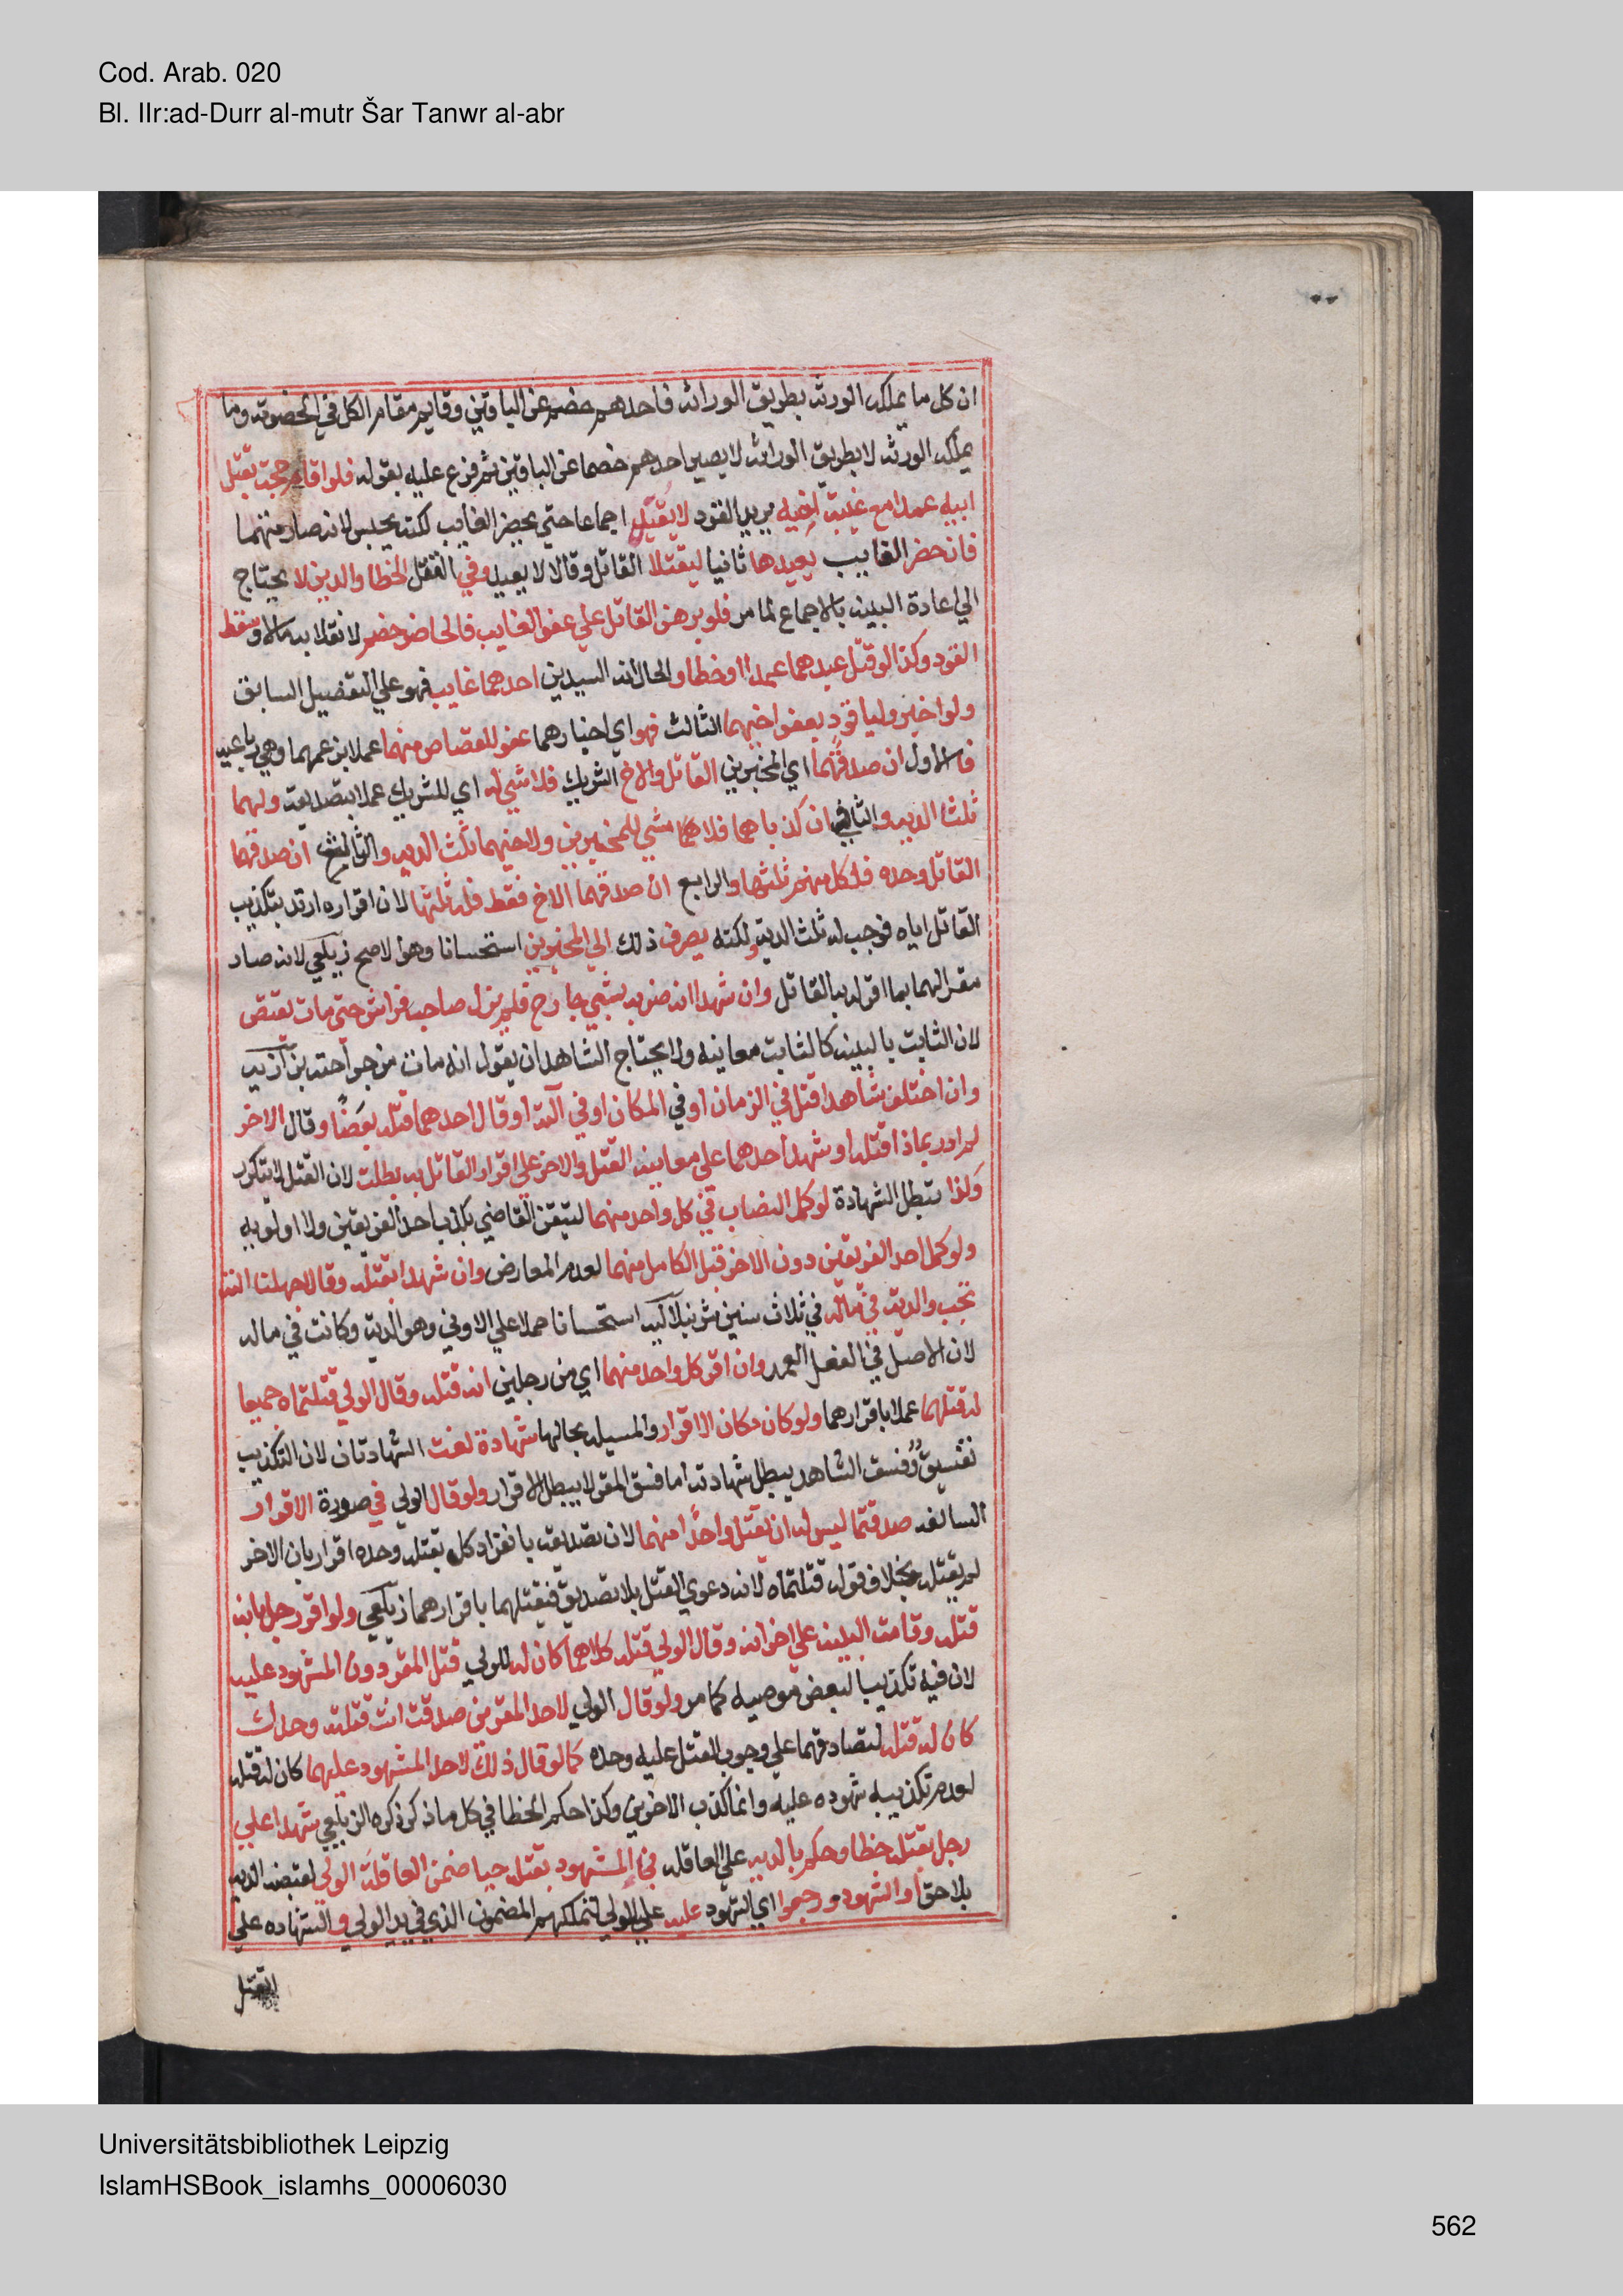 Cod. Arab. 020
Bl. IIr:ad-Durr al-mutr Šar Tanwr al-abr
ان كل ما يملكه الورثة بطريق الوراثة فاحدهم خصم عن الباقين وقايم مقام الكل في الخصومة وما
يملكه الورثة لا بطريق الوراثة لا يصير احدهم خصما عن الباقين ثم فرع عليه بقوله فلو اقام حجة بقتل
ابيه عمدا مع غيبة اخيه يريد القود لا يقتل اجماعا حتي يحضر الغايب لكنه يحبس لانه صار متهما
فان حضر الغايب يعيدها ثانيا ليقتلا القاتل وقالا لا يعيد وفي القتل الخطا والدين لا يحتاج
الي اعادة البينة بالاجماع لما مر فلو برهن القاتل علي عفو الغايب فالحاضر خصم لانقلابه مالا وسقط
القود وكذا لو قتل عبدهما عمدا او خطا والحال ان السيدين احدهما غايب فهو علي التفصيل السابق
ولو اخبر وليا قود بعفو اخيهما الثالث فهو اي اخبارهما عفو للقصاص منهما عملا بزعمهما وهي رباعية
فالاول ان صدقهما اي المخبرين القاتل والاخ الشريك فلا شي له اي للشريك عملا بتصديقه ولهما
ثلثا الدية والثاني ان كذباهما فلا شي للمخبرين ولاخيهما ثلث الدية والثالث ان صدقهما
القاتل وحده فلكل منهم ثلثها والرابع ان صدقهما الاخ فقط فله ثلثها لان اقراره ارتد بتكذيب
القاتل اياه فوجب له ثلث الدية ولكنه يصرف ذلك الي المخبرين استحسانا وهو الاصح زيلعي لانه صار
مقرا لهما بما اقر له به القاتل وان شهدا انه ضربه بشي جارح فلم يزل صاحب فراش حتي مات يقتص
لان الثابت بالبينة كالثابت معاينة ولا يحتاج الشاهد ان يقول انه مات من جراحته بزازية
وان اختلف شاهدا قتل في الزمان او في المكان او في الته او قال احدهما قتله بعصا وقال الاخر
لم ادر بماذا قتله او شهد احدهما علي معاينة القتل والاخر علي اقرار القاتل به بطلت لان القتل لا يتكرر
وكذا تبطل الشهادة لو كمل النصاب في كل واحد منهما لتيقن القاضي بكذب احد الفريقين ولا اولوية
ولو كمل احد الفريقين دون الاخر قبل الكامل منهما لعدم المعارض وان شهدا بقتله وقالا جهلنا الته
تجب الدية في ماله في ثلاث سنين شرنبلالية استحسانا حملا علي الادني وهو الدية وكانت في ماله
لان الاصل في الفعل العمد وان اقر كل واحد منهما اي من رجلين انه قتله وقال الولي قتلتماه جميعا
له قتلهما عملا باقرارهما ولو كان مكان الاقرار والمسيلة بحالها شهادة لغت الشهادتان لان التكذيب
تفسيق وفسق الشاهد يبطل شهادته اما فسق المقر لا يبطل الاقرار ولو قال الولي في صورة الاقرار
السالفة صدقتما ليس له ان يقتل واحدا منهما لان تصديقه بانفراد كل بقتله وحده اقرار بان الاخر
لم يقتله بخلاف قوله قتلتماه لانه دعوي القتل بلا تصديق فيقتلهما باقرارهما زيلعي ولو اقر رجل بانه
قتله وقامت البينة علي اخر انه وقال الولي قتله كلاهما كان له للولي قتل المقر دون المشهود عليه
لان فيه تكذيبا لبعض موجبه كما مر ولو قال الولي لاحد المقرين صدقت انت قتلته وحدك
كان له قتله لتصادقهما علي وجوب القتل عليه وحده كما لو قال ذلك لاحد المشهود عليهما كان له قتله
لعدم تكذيبه شهوده عليه وانما كذب الاخرين وكذا حكم الخطا في كل ما ذكر ذكره الزيلعي شهدا علي
رجل بقتله خطا وحكم بالدية علي العاقلة فجا المشهود بقتله حيا ضمن العاقلة الولي لقبضه الدية
بلا حق او الشهود ورجعوا اي الشهود عليه علي الولي لتملكهم المضمون الذي في يد الولي والشهاده علي
القتل
Universitätsbibliothek Leipzig
IslamHSBook_islamhs_00006030
562